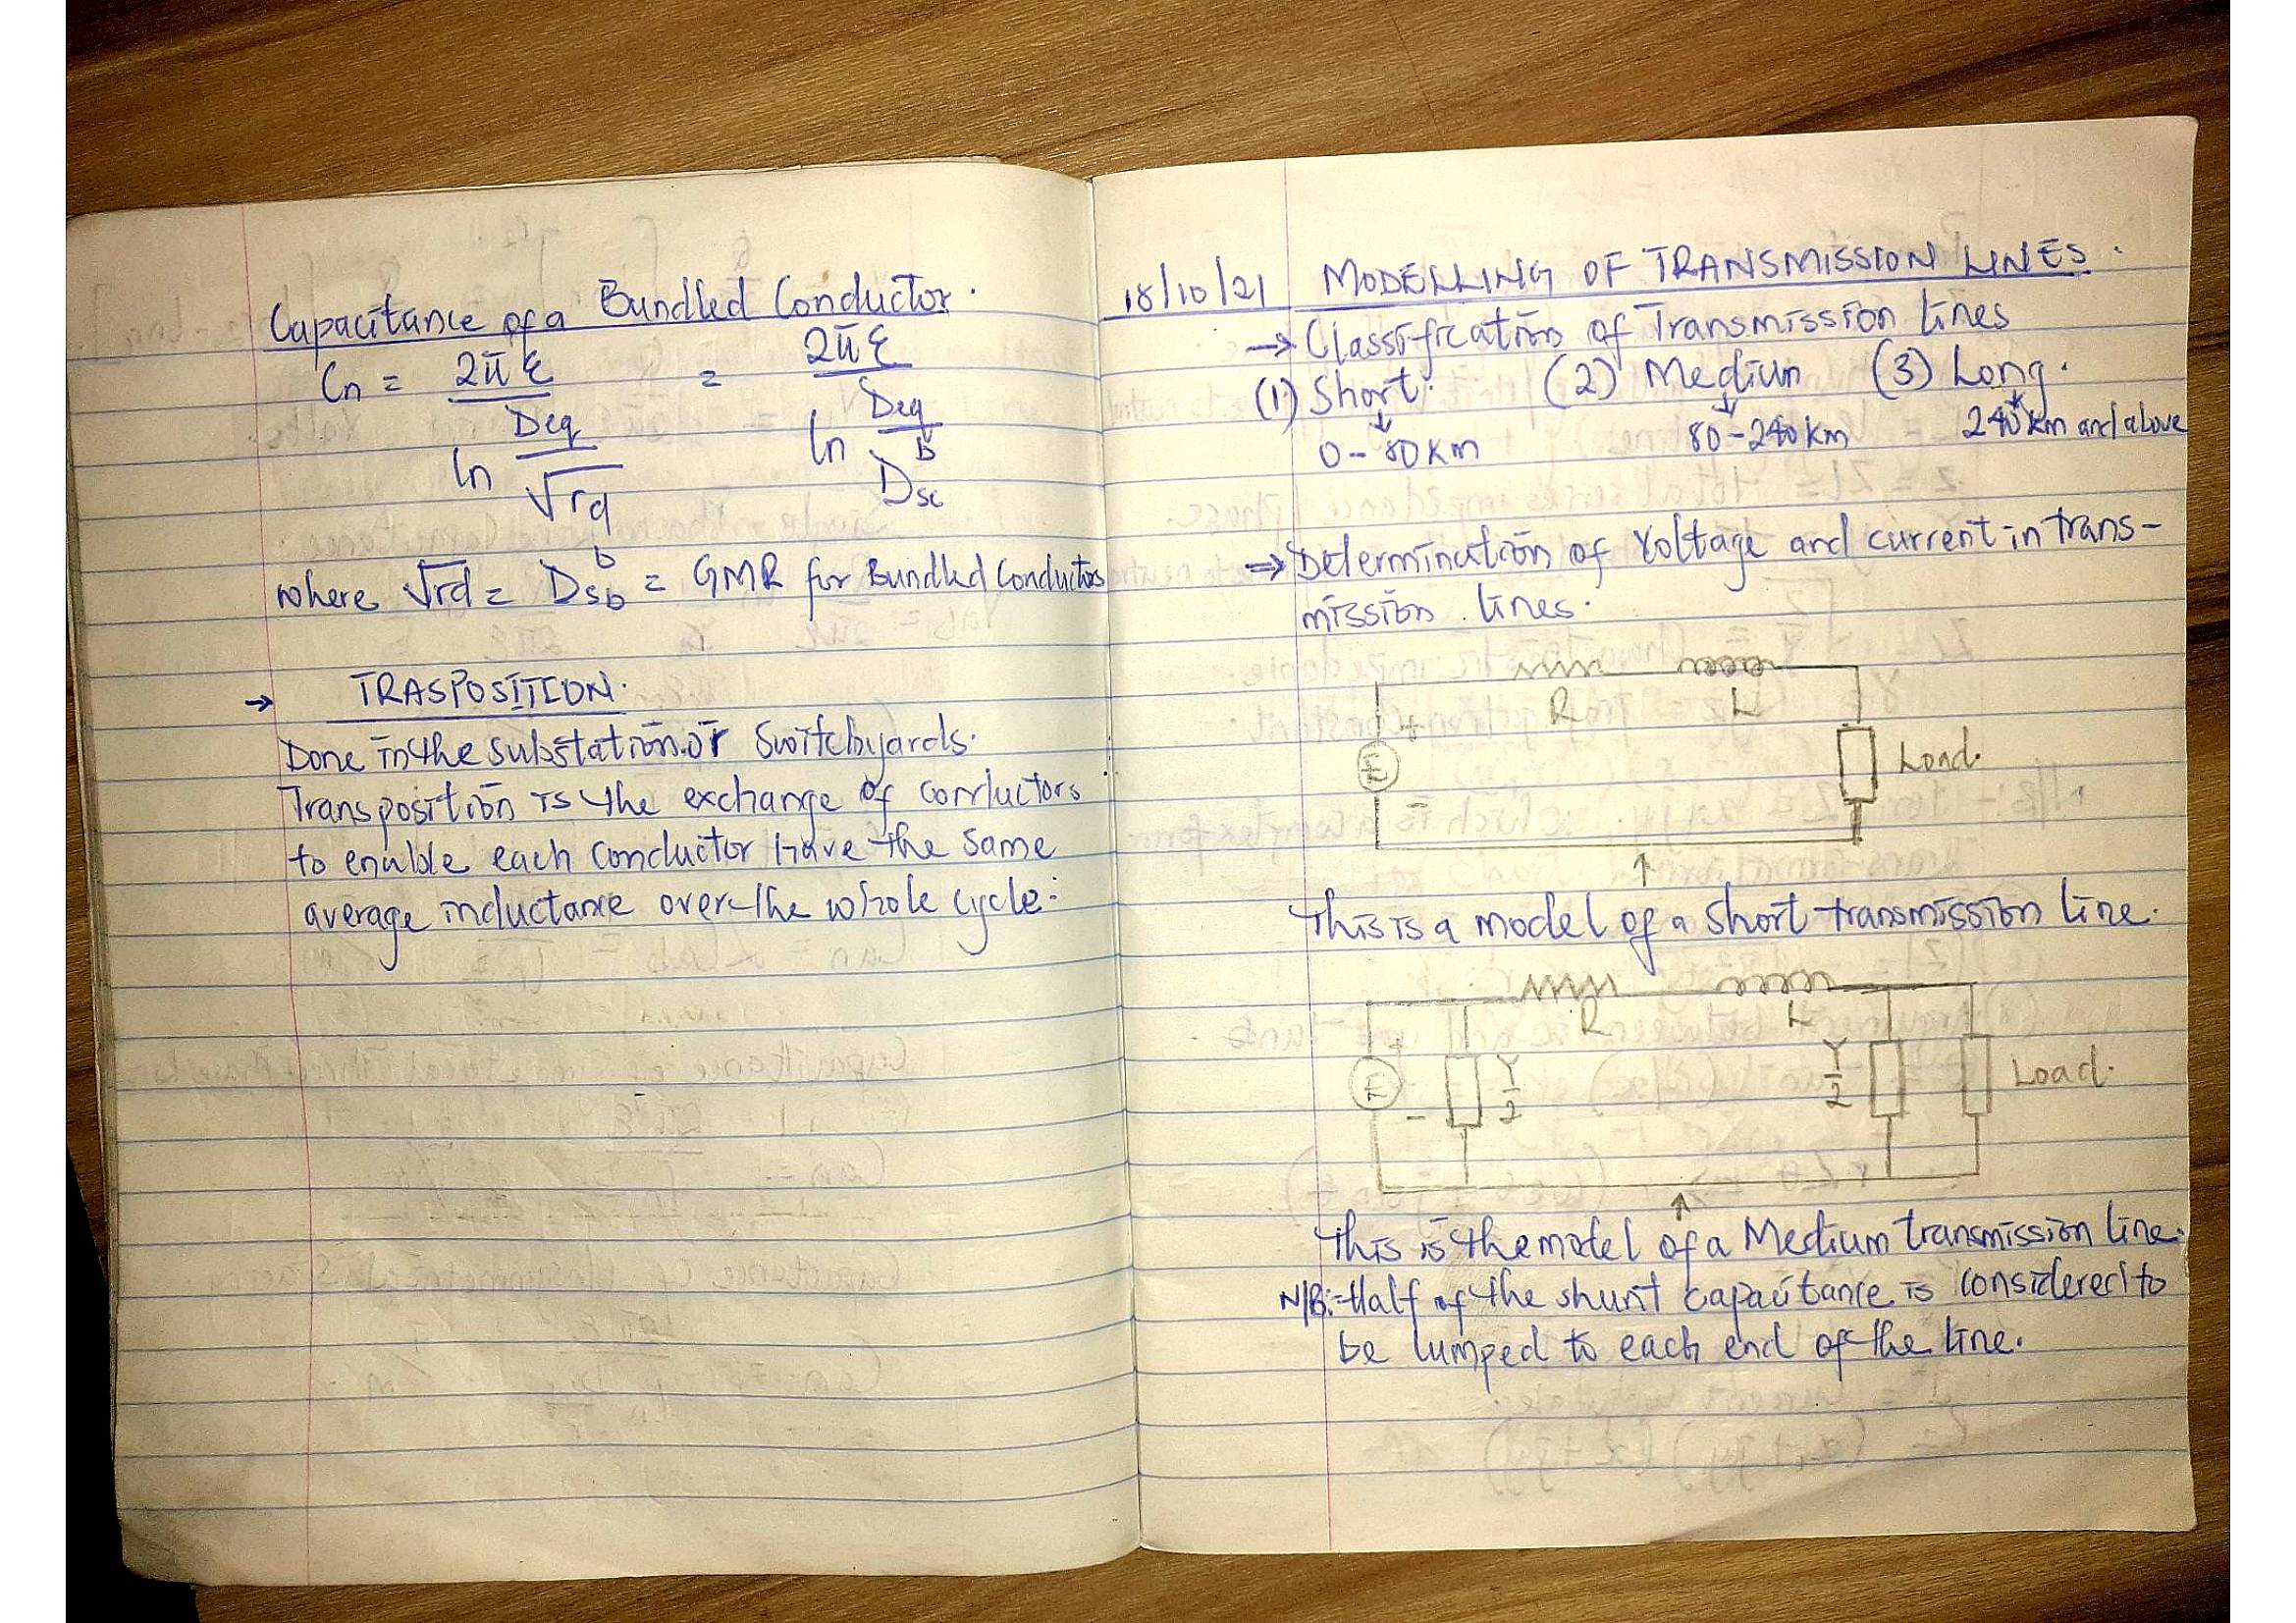 Capacitance of a Bundled Conductor.
Cn = 2πε / ln Deq/√rd = 2πε / ln Deq/Dsc^b
where √rd = Dsb^b = GMR for Bundled Conductors
→ TRASPOSITION.
Done in the substation or Switchyards.
Transposition is the exchange of conductors
to enable each conductor have the same
average inductance over the whole cycle.
18/10/21 MODELLING OF TRANSMISSION LINES.
→ Classification of Transmission lines
(1) Short. (2) Medium (3) Long.
0-80km 80-240km 240km and above
⇒ Determination of Voltage and current in trans-
mission lines.
R L
+
E
Load.
-
↑
This is a model of a short transmission line.
R L
+
E Y/2 Y/2 Load.
-
↑
This is the model of a Medium transmission line.
N/B:- Half of the shunt capacitance is considered to
be lumped to each end of the line.